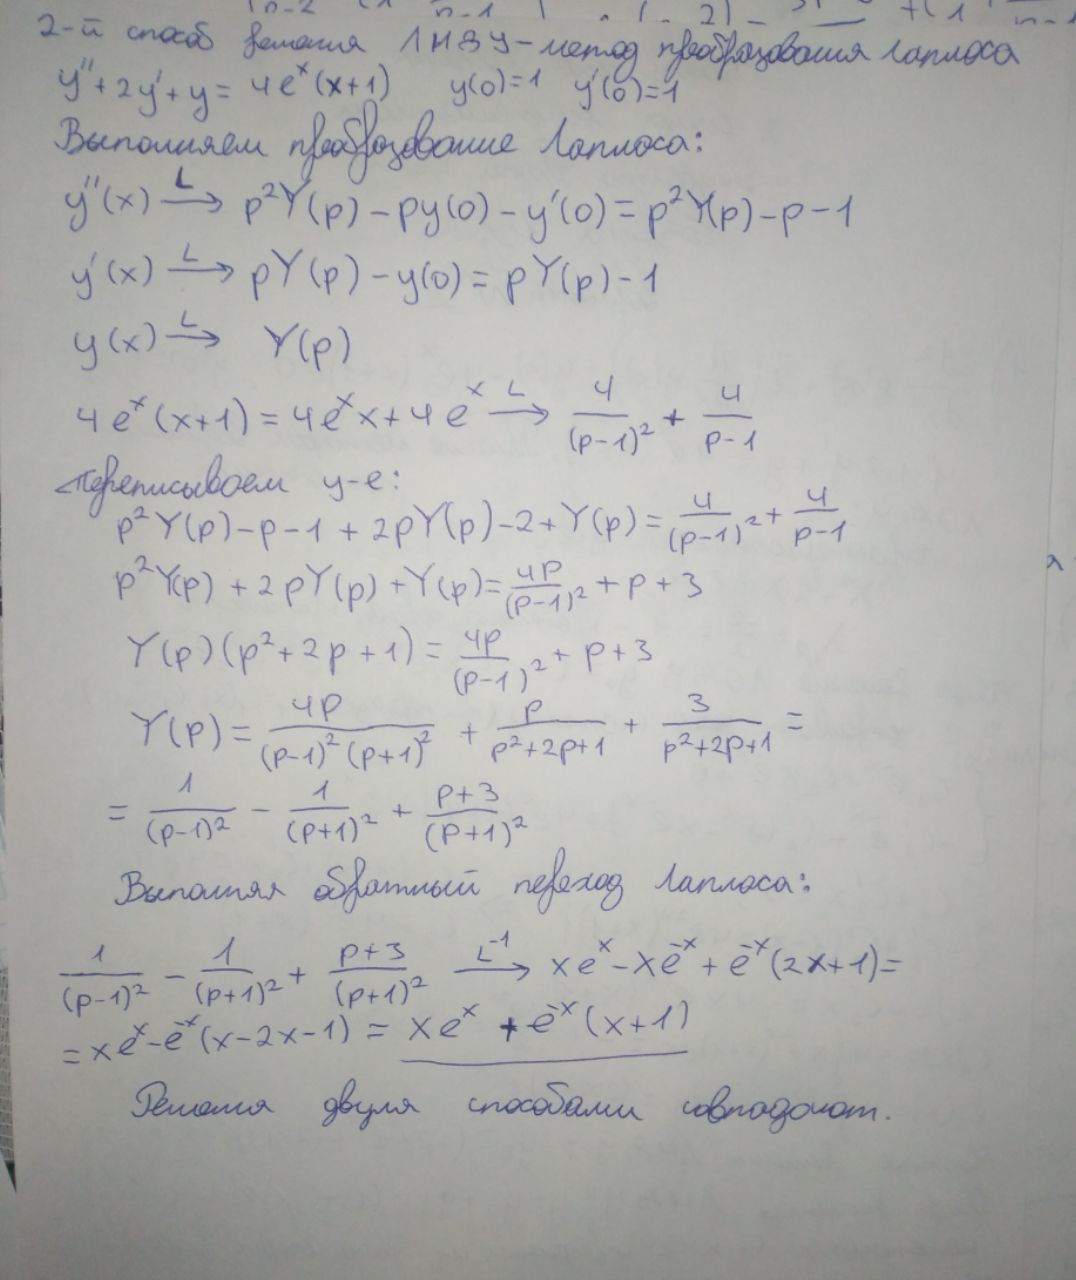 2-й способ решения ЛНДУ - метод преобразования Лапласа
y'' + 2y' + y = 4e^x(x+1)   y(0)=1   y'(0)=1
Выполняем преобразование Лапласа:
y''(x) \xrightarrow{L} p^2Y(p) - py(0) - y'(0) = p^2Y(p) - p - 1
y'(x) \xrightarrow{L} pY(p) - y(0) = pY(p) - 1
y(x) \xrightarrow{L} Y(p)
4e^x(x+1) = 4e^x x + 4e^x \xrightarrow{L} \frac{4}{(p-1)^2} + \frac{4}{p-1}
Переписываем у-е:
p^2Y(p) - p - 1 + 2pY(p) - 2 + Y(p) = \frac{4}{(p-1)^2} + \frac{4}{p-1}
p^2Y(p) + 2pY(p) + Y(p) = \frac{4p}{(p-1)^2} + p + 3
Y(p)(p^2 + 2p + 1) = \frac{4p}{(p-1)^2} + p + 3
Y(p) = \frac{4p}{(p-1)^2(p+1)^2} + \frac{p}{p^2+2p+1} + \frac{3}{p^2+2p+1} =
= \frac{1}{(p-1)^2} - \frac{1}{(p+1)^2} + \frac{p+3}{(p+1)^2}
Выполняя обратный переход Лапласа:
\frac{1}{(p-1)^2} - \frac{1}{(p+1)^2} + \frac{p+3}{(p+1)^2} \xrightarrow{L^{-1}} xe^x - xe^{-x} + e^{-x}(2x+1) =
= xe^x - e^{-x}(x-2x-1) = xe^x + e^{-x}(x+1)
Решения двумя способами совпадают.